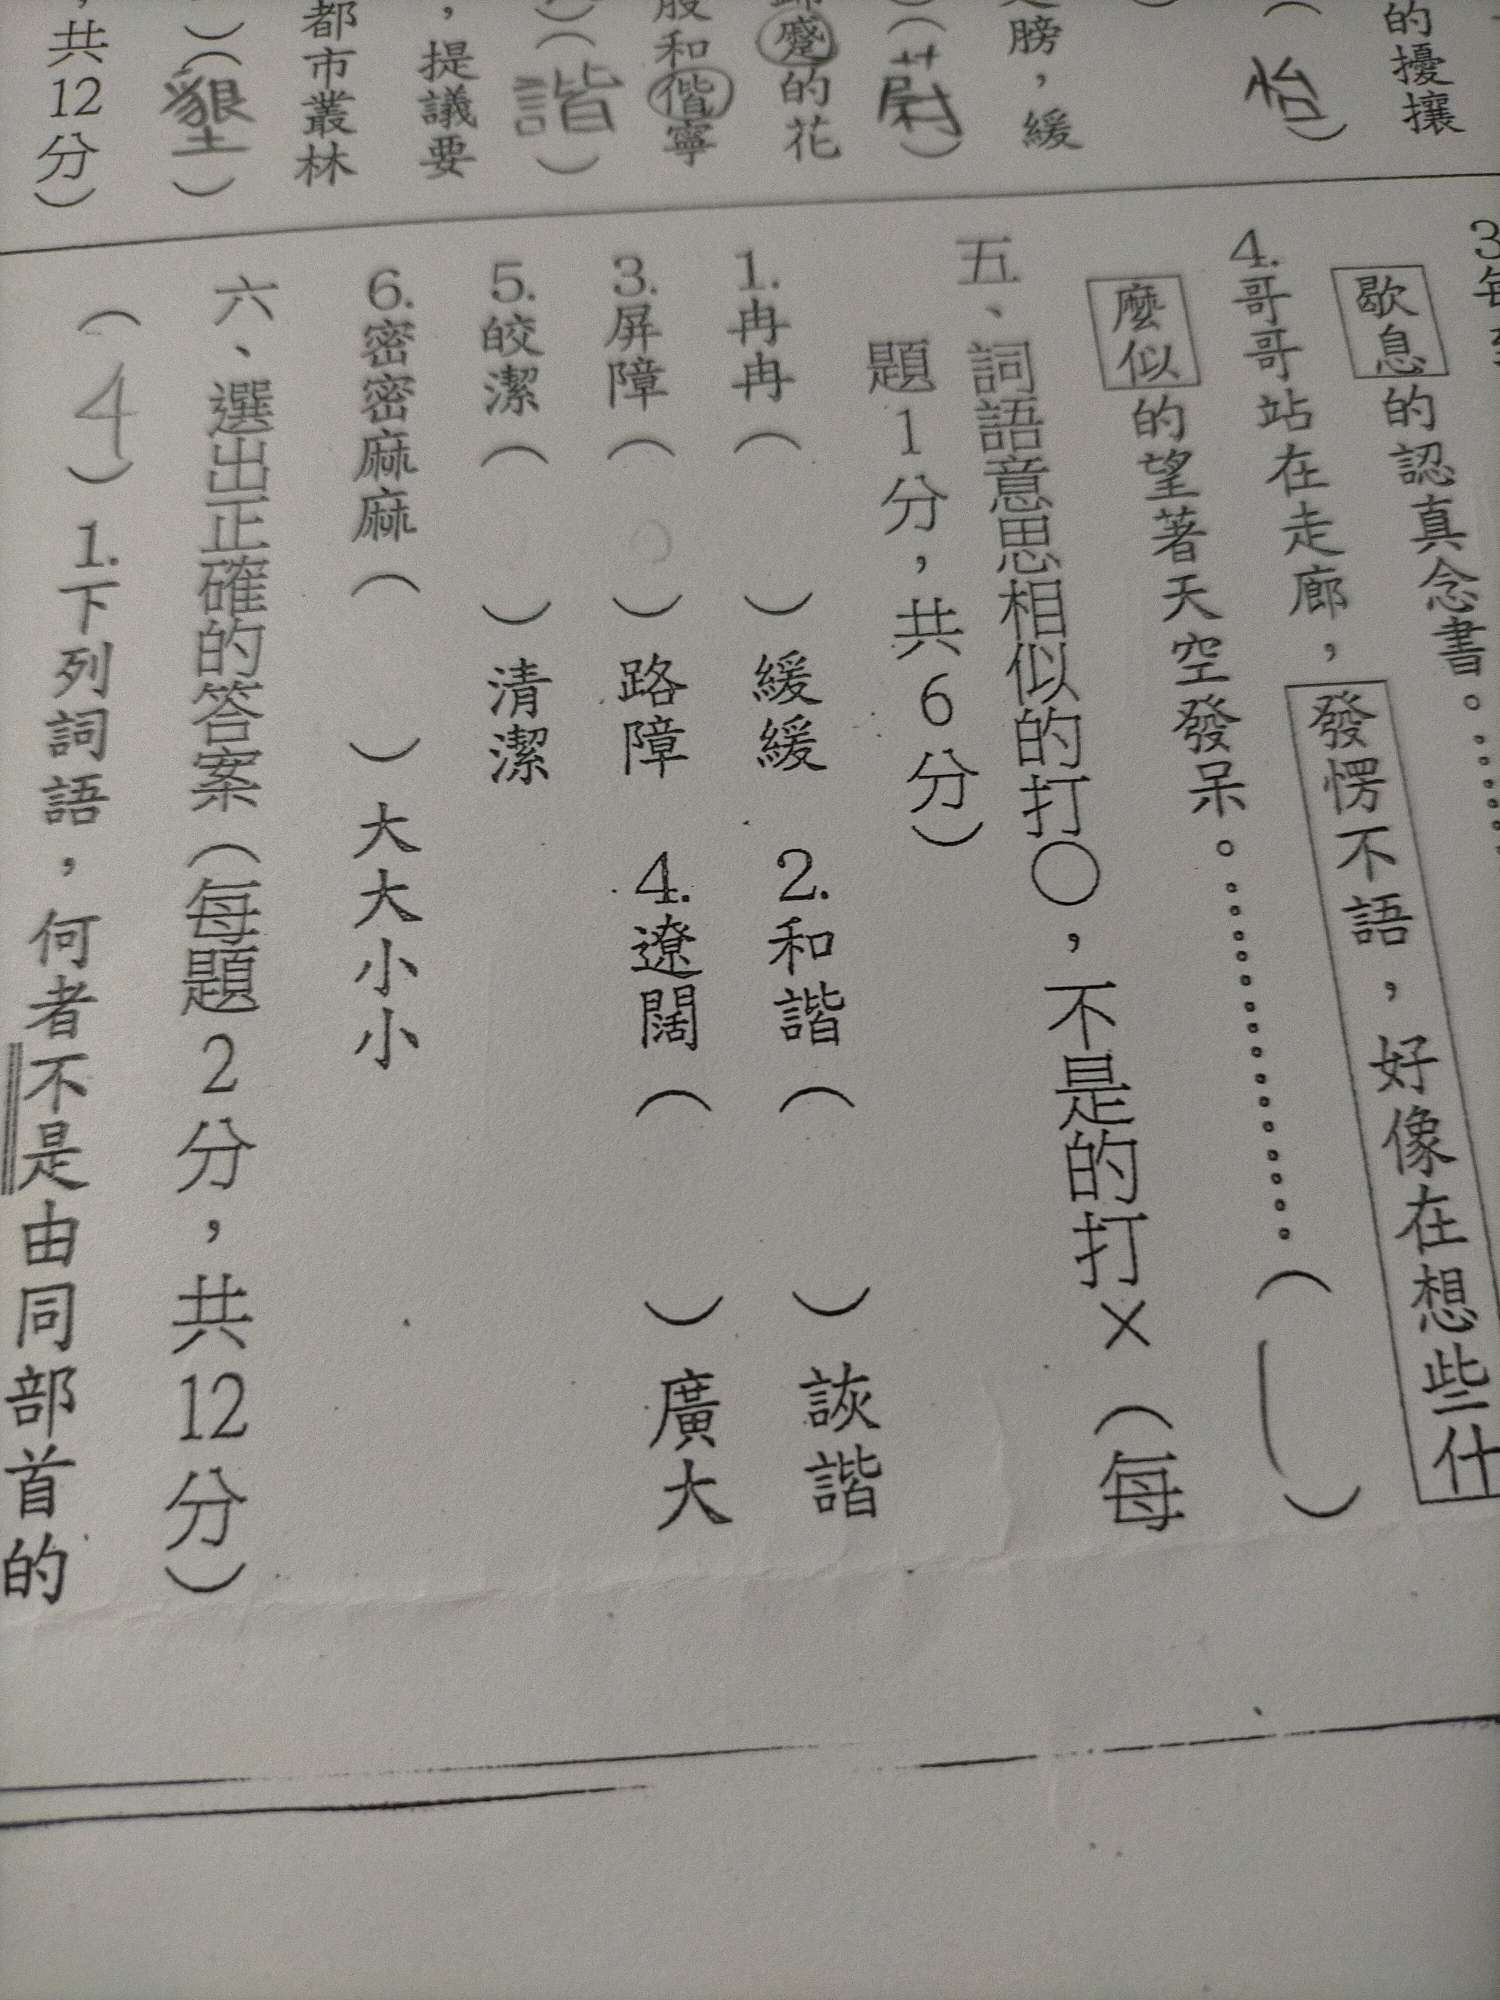 的擾攘
怡)
膀，緩
蔚)
的花
和偕寧
(諧)
，提議要
都市叢林
)(墾)
，共12分)
歇息的認真念書。
4.哥哥站在走廊，發愣不語，好像在想些什
麼似的望著天空發呆。(　)
五、詞語意思相似的打○，不是的打×（每
題1分，共6分）
1.冉冉（　）緩緩　2.和諧（　）詼諧
3.屏障（　）路障　4.遼闊（　）廣大
5.皎潔（　）清潔
6.密密麻麻（　）大大小小
六、選出正確的答案（每題2分，共12分）
（4）1.下列詞語，何者不是由同部首的